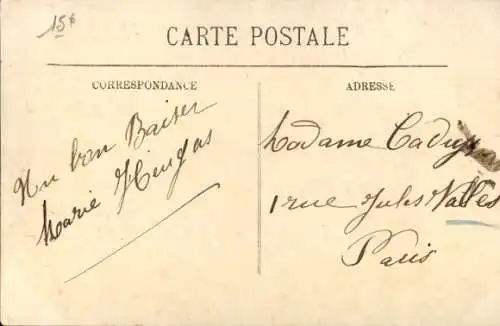 15€
CARTE POSTALE
CORRESPONDANCE
Un bon Baiser
Marie
ADRESSE
Madame
1 rue Jules Vallès
Paris